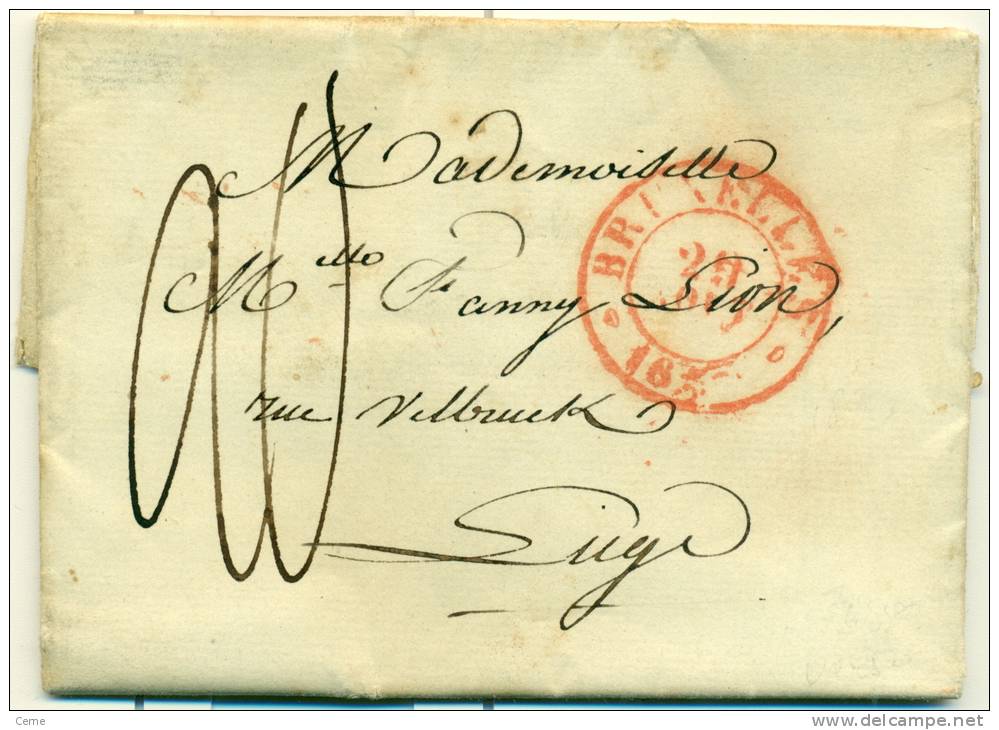 Mademoiselle
Mlle Fanny Lion,
rue Velbruck
Liége
BRUXELLES
Ceme
www.delcampe.net